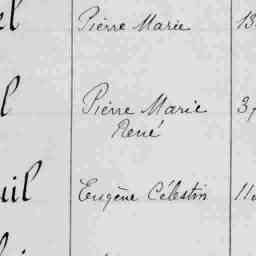 el Pierre Marie 13
l Pierre Marie 3
René
uil Eugène Célestin 11